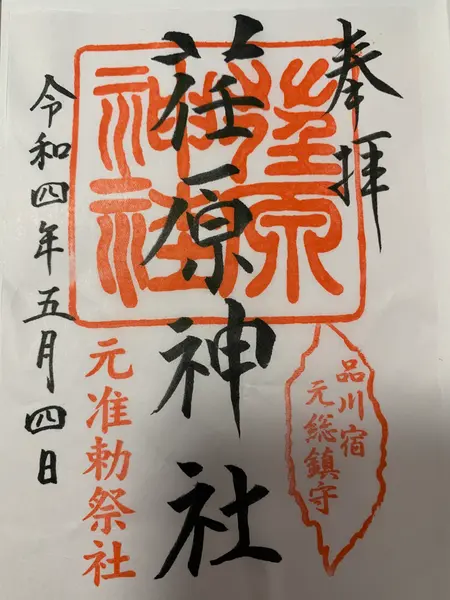 奉拝
荏原神社
令和四年五月四日
荏原
神社
品川宿
元総鎮守
元准勅祭社